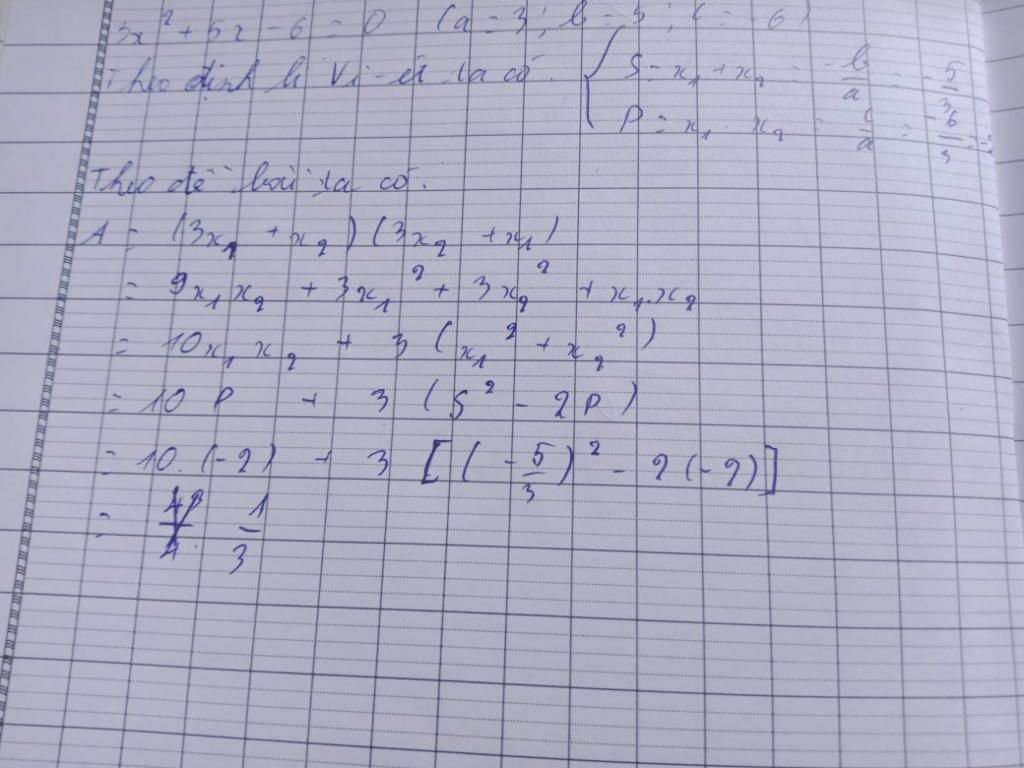 3x² + 5x - 6 = 0 (a = 3; b = 5; c = -6)
Theo định lí Vi-ét ta có. { S = x₁ + x₂ = -b/a = -5/3
P = x₁ . x₂ = c/a = -6/3 = -2
Theo đề bài ta có.
A = (3x₁ + x₂)(3x₂ + x₁)
= 9x₁x₂ + 3x₁² + 3x₂² + x₁.x₂
= 10x₁x₂ + 3(x₁² + x₂²)
= 10P + 3(S² - 2P)
= 10.(-2) + 3[(-5/3)² - 2(-2)]
= 1/3